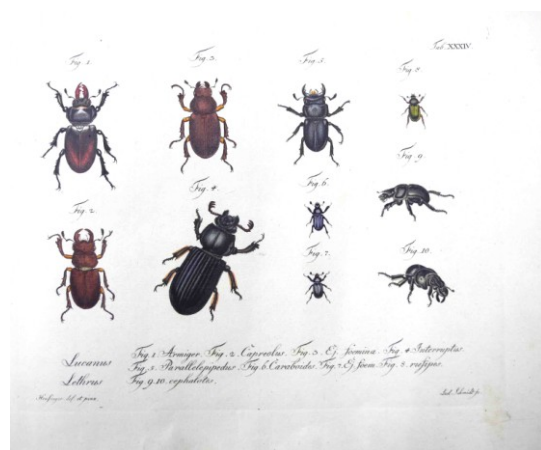 Tab. XXXIV.
Fig. 1.
Fig. 3.
Fig. 5.
Fig. 8.
Fig. 6.
Fig. 9.
Fig. 2.
Fig. 4.
Fig. 7.
Fig. 10.
Lucanus
Fig. 1. Armiger. Fig. 2. Capreolus. Fig. 3. Ej. foemina. Fig. 4. Interruptus.
Fig. 5. Parallelepipedus. Fig. 6. Caraboides. Fig. 7. Ej. foem. Fig. 8. rufipes.
Lethrus
Fig. 9. 10. cephalotes.